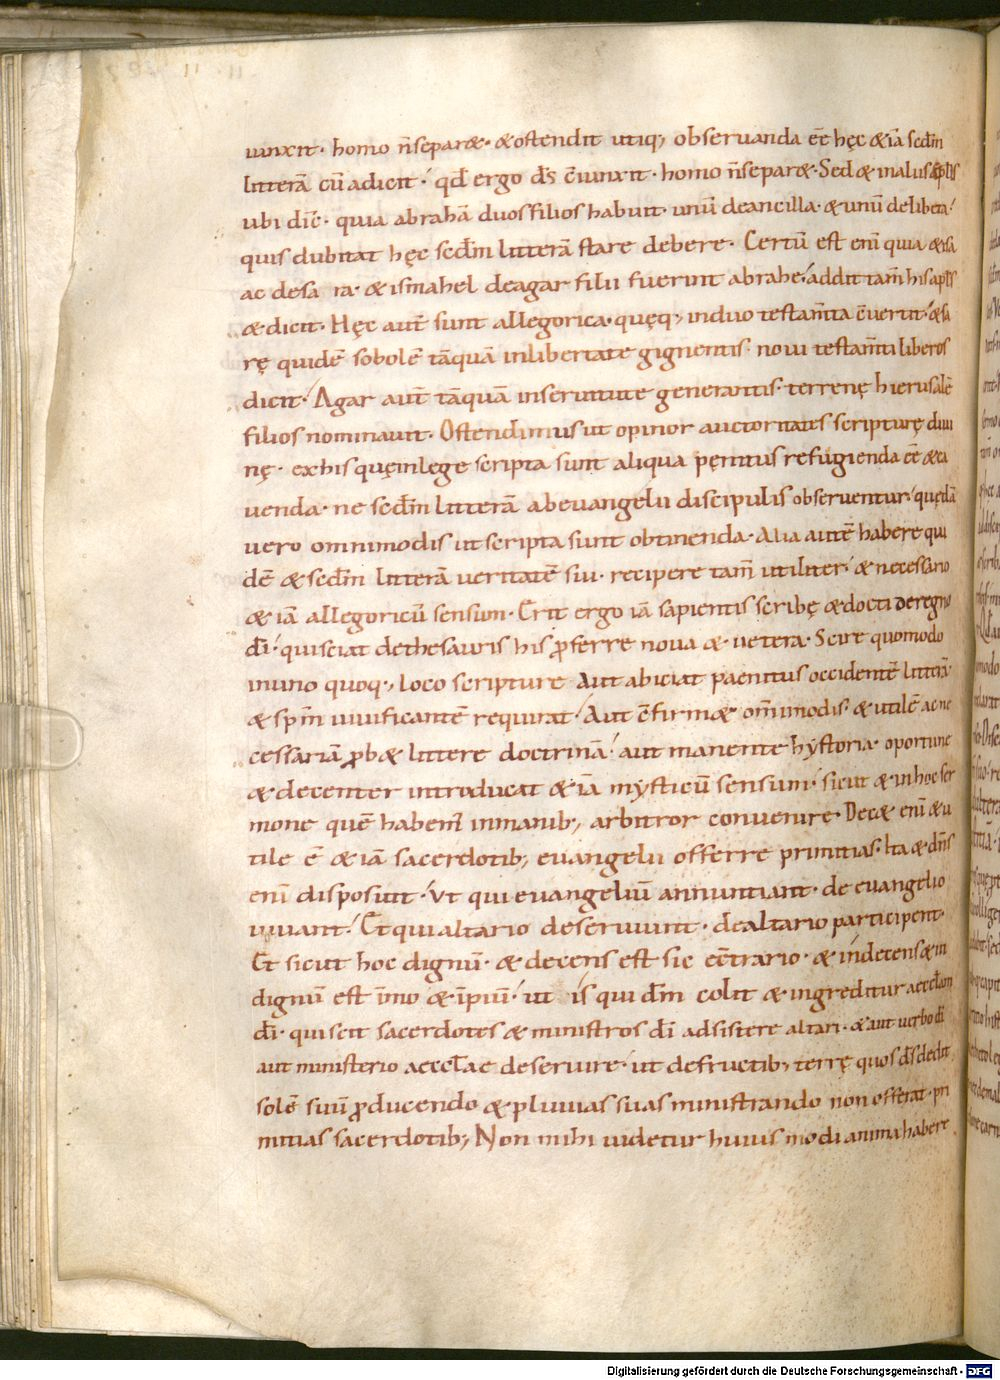 iunxit· homo ñ separ&· & ostendit utiq; obseruanda eē hęc & iā scdm̄
litterā cū adicit· qđ ergo dš c̄iunxit· homo ñ separ&· Sed & in alius apľs
ubi dic̄· quia abrahā duos filios habuit· unū de ancilla· & unū de libera·
quis dubitat hęc scdm̄ litterā stare debere· Certū est enī quia & isa
ac de sa ra· & ismahel de agar filii fuerint abrahe· addit tam̄ his apľs
& dicit· Hęc aut̄ sunt allegorica· quęq; in duo testam̄ta c̄uertit· & sa
rę quidē sobolē tāquā in libertate gignentis noui testam̄ti liberos
dicit· Agar aut̄ tāquā in seruitute generantis· terrenę hierusalē
filios nominauit· Ostendimus ut opinor auctoritates scripturę diui
nę· ex his quę in lege scripta sunt aliqua pęnitus refugienda eē & ca
uenda· ne scdm̄ litterā ab euangelii discipulis obseruentur· quędā
uero omnimodis ut scripta sunt obtinenda· Alia autē habere qui
dē & scdm̄ litterā ueritatē sui· recipere tam̄ utiliter· & necessario
& iā allegoricū sensum· Erit ergo iā sapientis scribę & docti de regno
dī· qui sciat de thesauris his p̄ferre noua & uetera· Scire quomodo
in uno quoq; loco scripture Aut abiciat paenitus occidentē litterā·
& sp̄m uiuificantē requirat· Aut c̄firm& om̄imodis· & utilē ac ne
cessariā p̄b& littere doctrinā· aut manente hystoria· oportune
& decenter introducat & iā mysticū sensum· sicut & in hoc ser
mone quē habem᷒ in manib; arbitror conuenire· Dec& enī & u
tile ē & iā sacerdotib; euangelii offerre primitias· Ita & dn̄s
enī disposuit· Ut qui euangeliū annuntiant· de euangelio
uiuant· Et qui altario deseruiunt· de altario participent·
Et sicut hoc dignū· & decens est sic ec̄trario· & indecens & in
dignū est īmo & īpiū· ut is qui dm̄ colit & ingreditur aeccľam
dī· qui scit sacerdotes & ministros dī adsistere altari· & aut uerbo dī
aut ministerio aeccľae deseruire· ut de fructib; terrę quos dš dedit
solē suū p̄ducendo & pluuias suas ministrando non offerat· pri
mitias sacerdotib; Non mihi uidetur huius modi anima habere
Digitalisierung gefördert durch die Deutsche Forschungsgemeinschaft - DFG